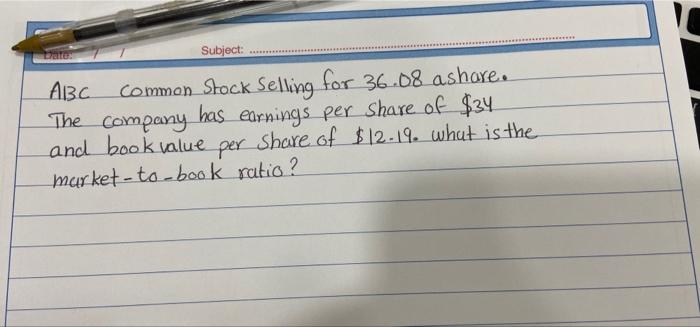 Date: / /
Subject:
ABC common Stock Selling for 36.08 a share.
The company has earnings per share of $34
and book value per share of $12.19. what is the
market-to-book ratio?